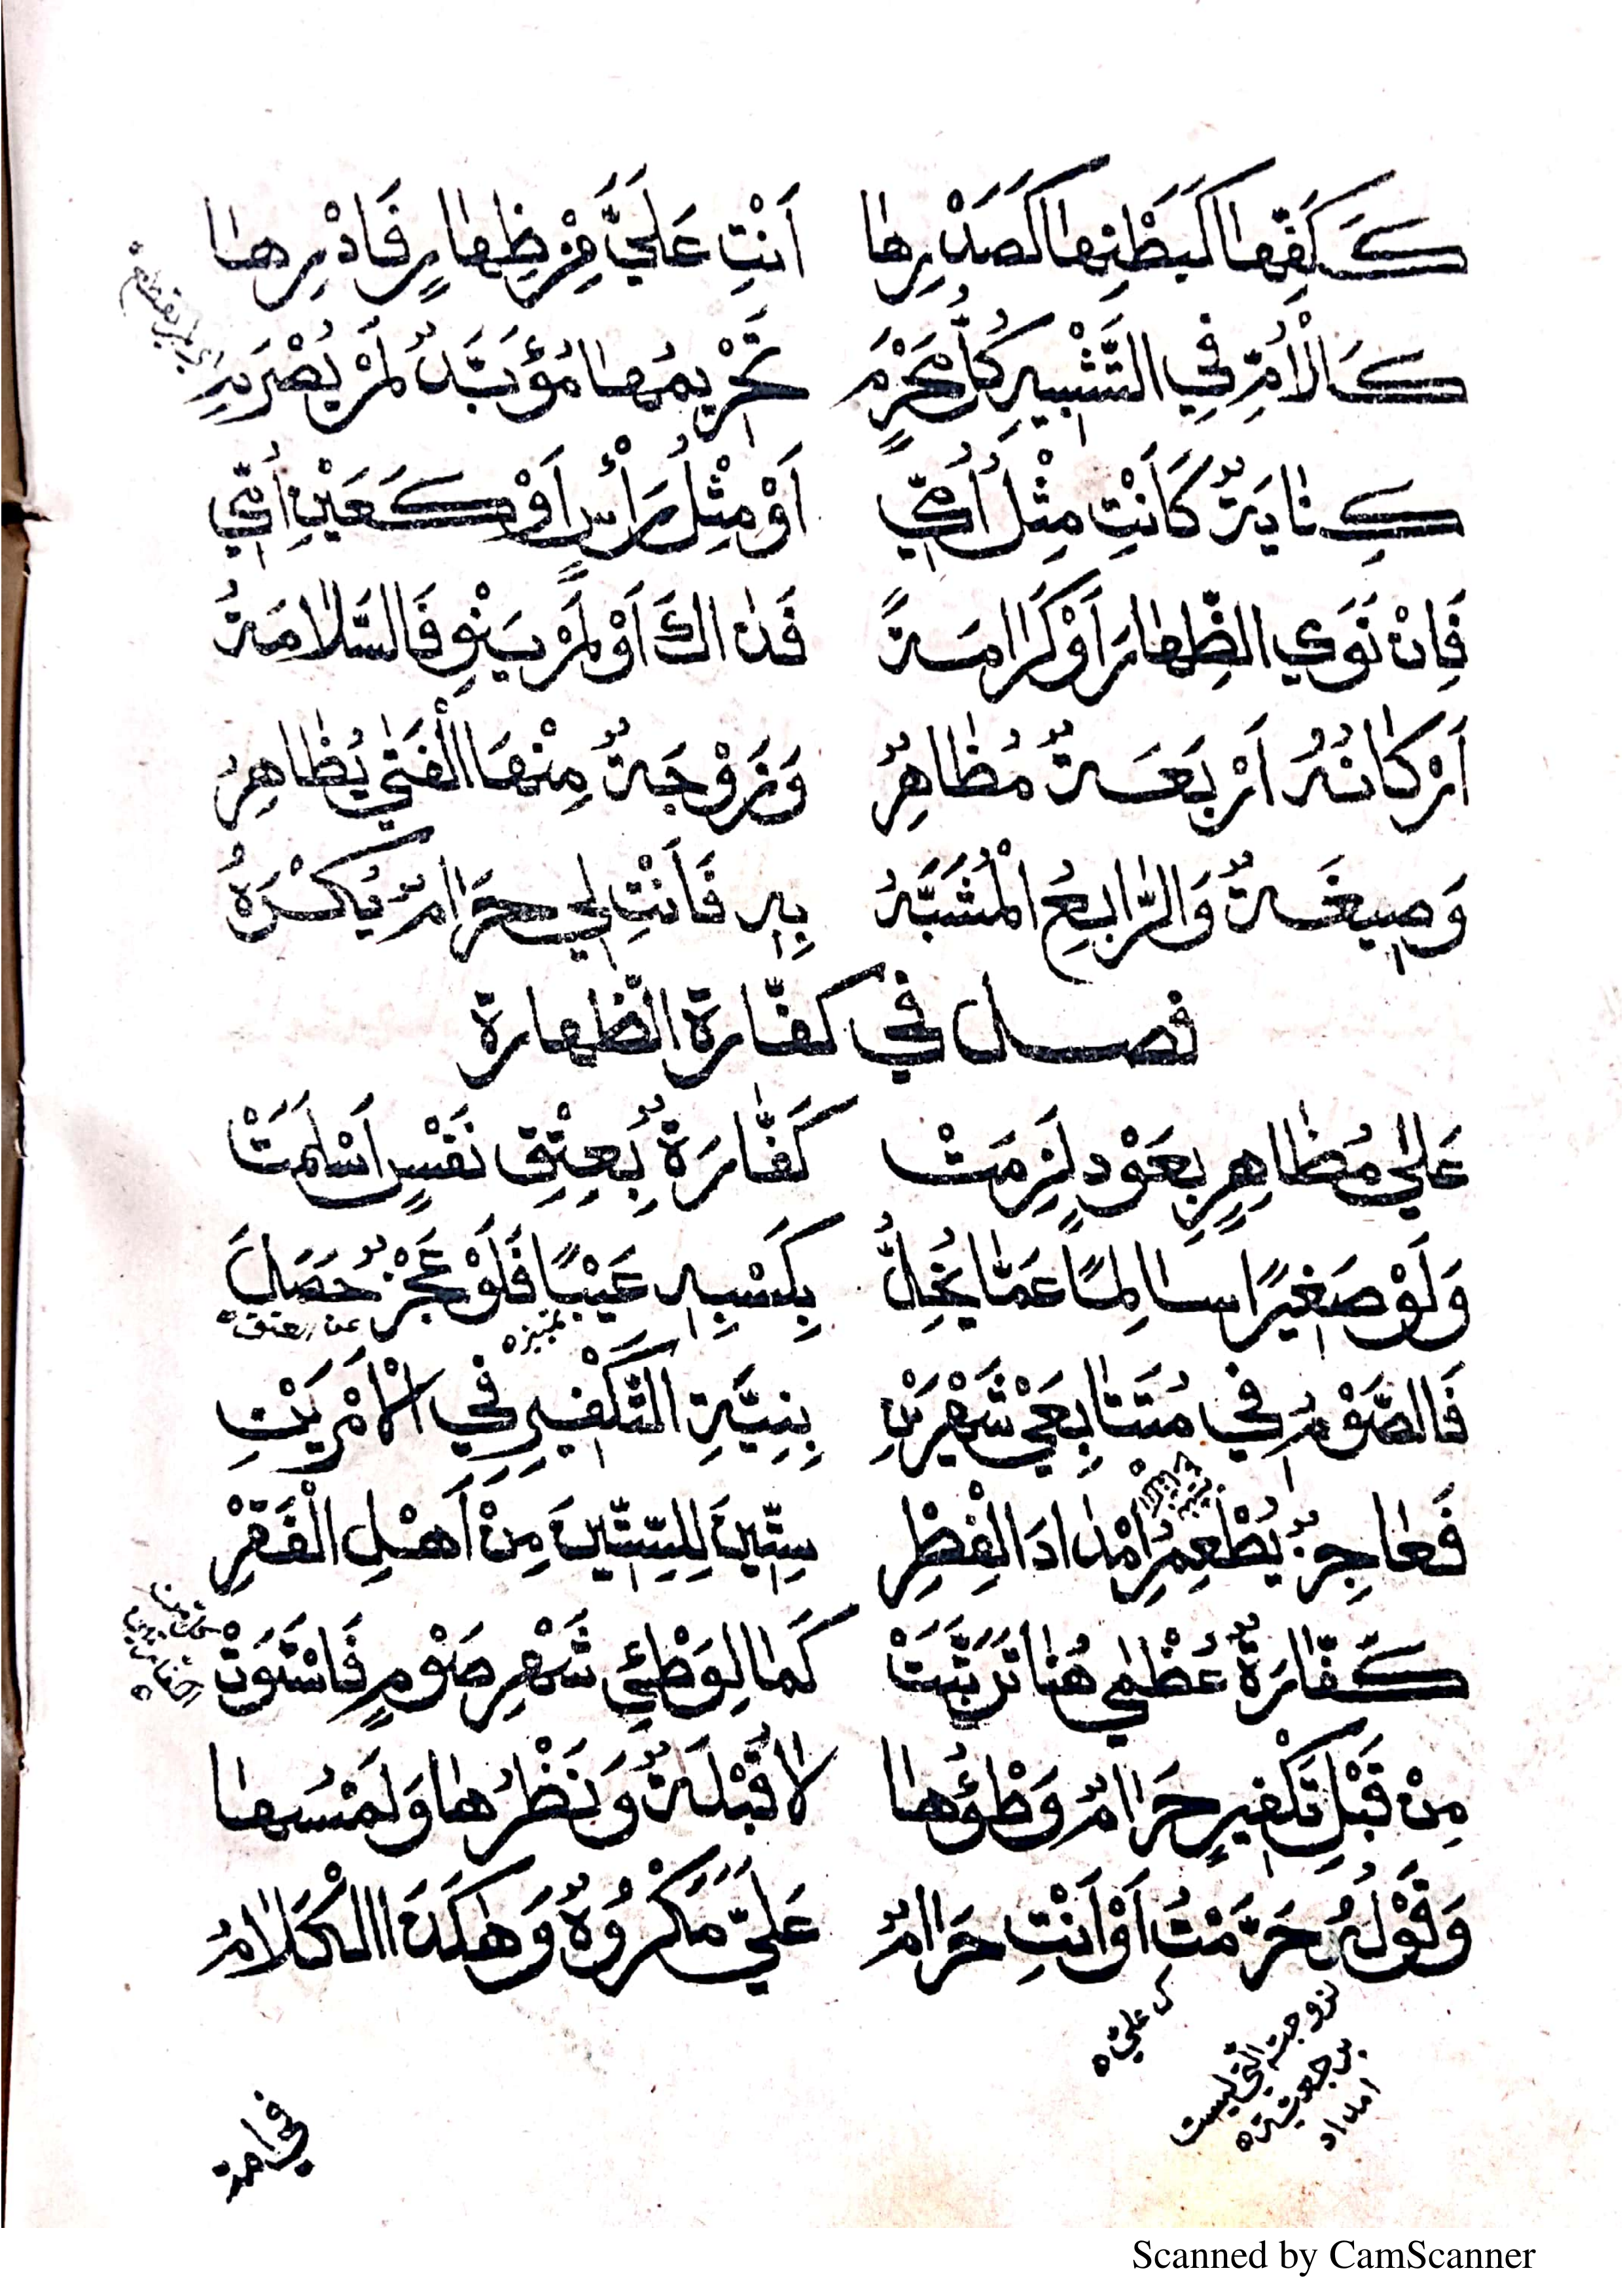 كَكَفِّهَا كَبَطْنِهَا كَصَدْرِهَا اَنْتِ عَلَيَّ مِنْ ظِهَارٍ فَادْرِهَا
كَالْاُمِّ فِي التَّشْبِيهِ كُلُّ مَحْرَمٍ تَحْرِيْمُهَا مُؤَبَّدٌ لَمْ يُصْرَمِ
كِنَايَةٌ كَاَنْتِ مِثْلُ اُمِّي اَوْ مِثْلُ رَأْسٍ اَوْ كَعَيْنِ اُمِّي
فَاِنْ نَوَى الظِّهَارَ اَوْ كَرَامَةً فَذَاكَ اَوْ لَمْ يَنْوِ فَالسَّلَامَةُ
اَرْكَانُهُ اَرْبَعَةٌ مُظَاهِرٌ وَزَوْجَةٌ مِنْهَا الْفَتَى يُظَاهِرُ
وَصِيغَةٌ وَالرَّابِعُ الْمُشَبَّهُ بِهِ فَاَنْتِ لِي حَرَامٌ يُكْرَهُ
فصل في كفّارة الظهارة
عَلَى مُظَاهِرٍ بِعَوْدٍ لَزِمَتْ كَفَّارَةٌ بِعِتْقِ نَفْسٍ اَسْلَمَتْ
وَلَوْ صَغِيْرًا سَالِمًا عَمَّا يُخِلُّ بِكَسْبِهِ عَيْبًا فَلَوْ عَجْزٌ حَصَلَ
عن العتق
فَالصَّوْمُ فِي مُتَتَابِعَيْ شَهْرَيْنِ بِنِيَّةِ التَّكْفِيرِ فِي الْاَمْرَيْنِ
فَعَاجِزٌ يُطْعِمُ اَمْدَادَ الْفِطْرِ سِتِّيْنَ لِلسِّتِّيْنَ مِنْ اَهْلِ الْفَقْرِ
كَفَّارَةٌ عُظْمَى هُنَا تَرَتَّبَتْ كَمَا لِوَطْئِ شَهْرِ صَوْمٍ فَاسْتَوَتْ
مِنْ قَبْلِ تَكْفِيرٍ حَرَامٌ وَطْؤُهَا لَا قُبْلَةٌ وَنَظْرُهَا وَلَمْسُهَا
وَقَوْلُهُ حَرَّمْتُ اَوْ اَنْتِ حَرَامٌ عَلَيَّ مَكْرُوْهٌ وَهَكَذَا الْكَلَامُ
لزوجته التي ليست
برجعية
امداد
في امة
Scanned by CamScanner